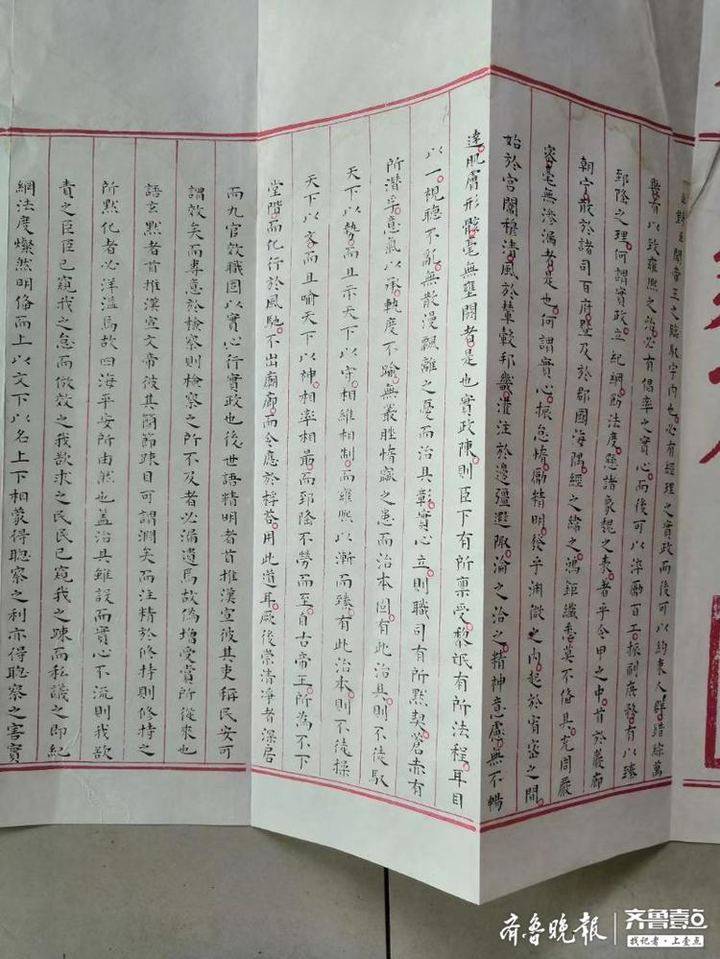 臣對臣聞帝王之臨馭宇內也必有經理之實政而後可以約束人群錯綜萬
機有以致雍熙之治必有倡率之實心而後可以淬勵百工振刷庶務有以臻
郅隆之理何謂實政立紀綱飭法度懸諸象魏之表著乎令甲之中首於巖廊
朝宁散於諸司百府暨及於郡國海隅經之緯之鴻鉅纖悉莫不备具充周嚴
密毫無滲漏者是也何謂實心振怠惰勵精明發乎淵微之內起於宥密之間
始於宮闈穆清風於輦轂邦畿灌注於邊疆遐陬淪之洽之精神意慮無不暢
達肌膚形骸毫無壅閼者是也實政陳則臣下有所稟受黎氓有所法程耳目
以一視聽不亂無散漫飄離之憂而治具彰實心立則職司有所默契蒼赤有
所潛孚意氣以承軌度不踰無叢脞惰窳之患而治本固有此治具則不徒馭
天下以勢而且示天下以守相維相制而雍熙以漸而臻有此治本則不徒操
天下以文而且喻天下以神相率相勗而郅隆不勞而至自古帝王所為不下
堂階而化行於風馳不出廟廊而令應於桴荅用此道耳厥後崇清淨者深居
而九官效職固以實心行實政也後世語精明者首推漢宣彼其吏稱民安可
謂效矣而專意於檢察則檢察之所不及者必漏遺焉故偽增受賞所從來也
語玄默者首推漢宣文帝彼其簡節疎目可謂淵矣而注精於修持則修持之
所默化者必洋溢焉故四海平安所由然也蓋治具雖設而實心不流則我欲
責之臣臣已窺我之怠而倣效之我欲求之民民已窺我之疎而私議之即紀
綱法度燦然明备而上以文下以名上下相蒙得聰察之利亦得聰察之害實
齐鲁晚报
齐鲁壹点
找记者·上壹点